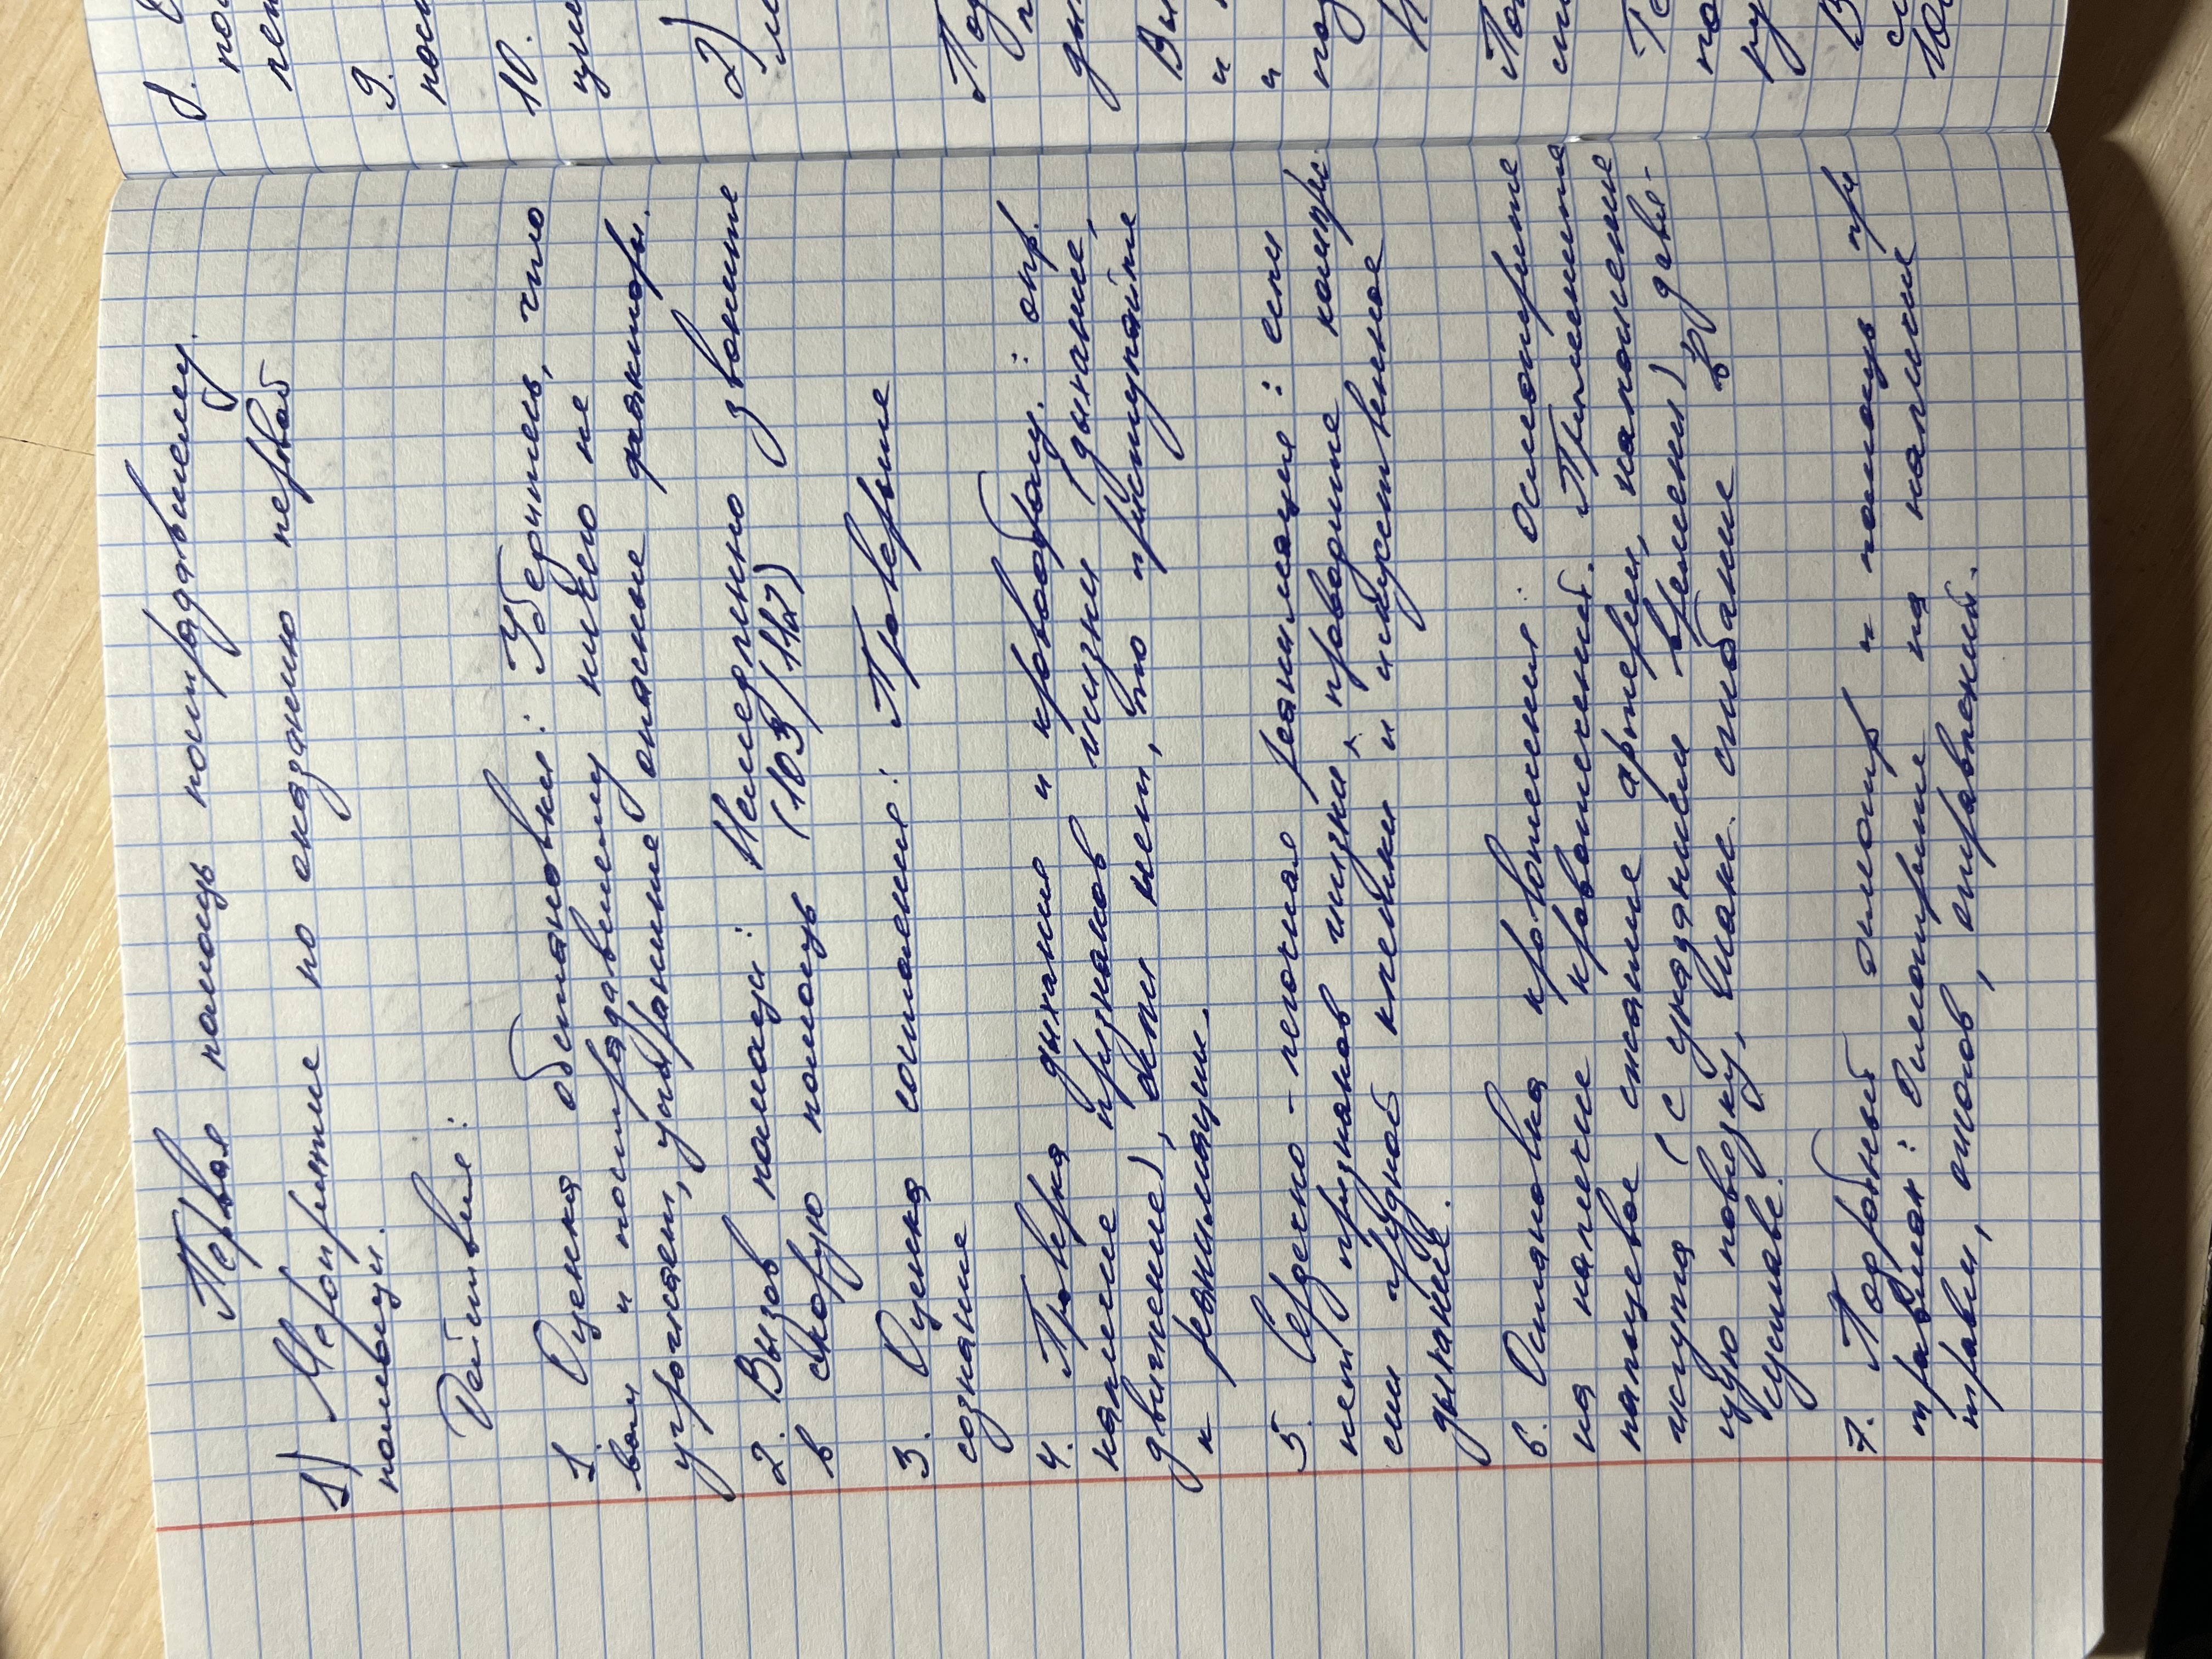 Первая помощь пострадавшему.
1) Мероприятие по оказанию первой
помощи.
Действия:
1. Оценка обстановки: Уберитесь, что
вам и пострадавшему ничего не
угрожает, устранение опасные факторы.
2. Вызов помощи: Немедленно звоните
в скорую помощь (103/112)
3. Оценка состояния: Проверьте
сознание
4. Проверка дыхания и кровообращ.: опр.
наличие признаков жизни (дыхание,
движение), если нет, то приступайте
к реанимации.
5. Сердечно-легочная реанимация: если
нет признаков жизни, проводите компрес-
сии грудной клетки и искуственное
дыхание.
6. Остановка кровотечения: Осмотрите
на наличие кровотечений. Примените
пальцевое сжатие артерии, наложение
жгута (с указанием времени) давя-
щую повязку, макс. сгибание в
суставе.
7. Подробный осмотр и помощь пр
травмах: Осмотрите на наличие
травм, ожогов, отравлений.
8.
9.
10.
2)